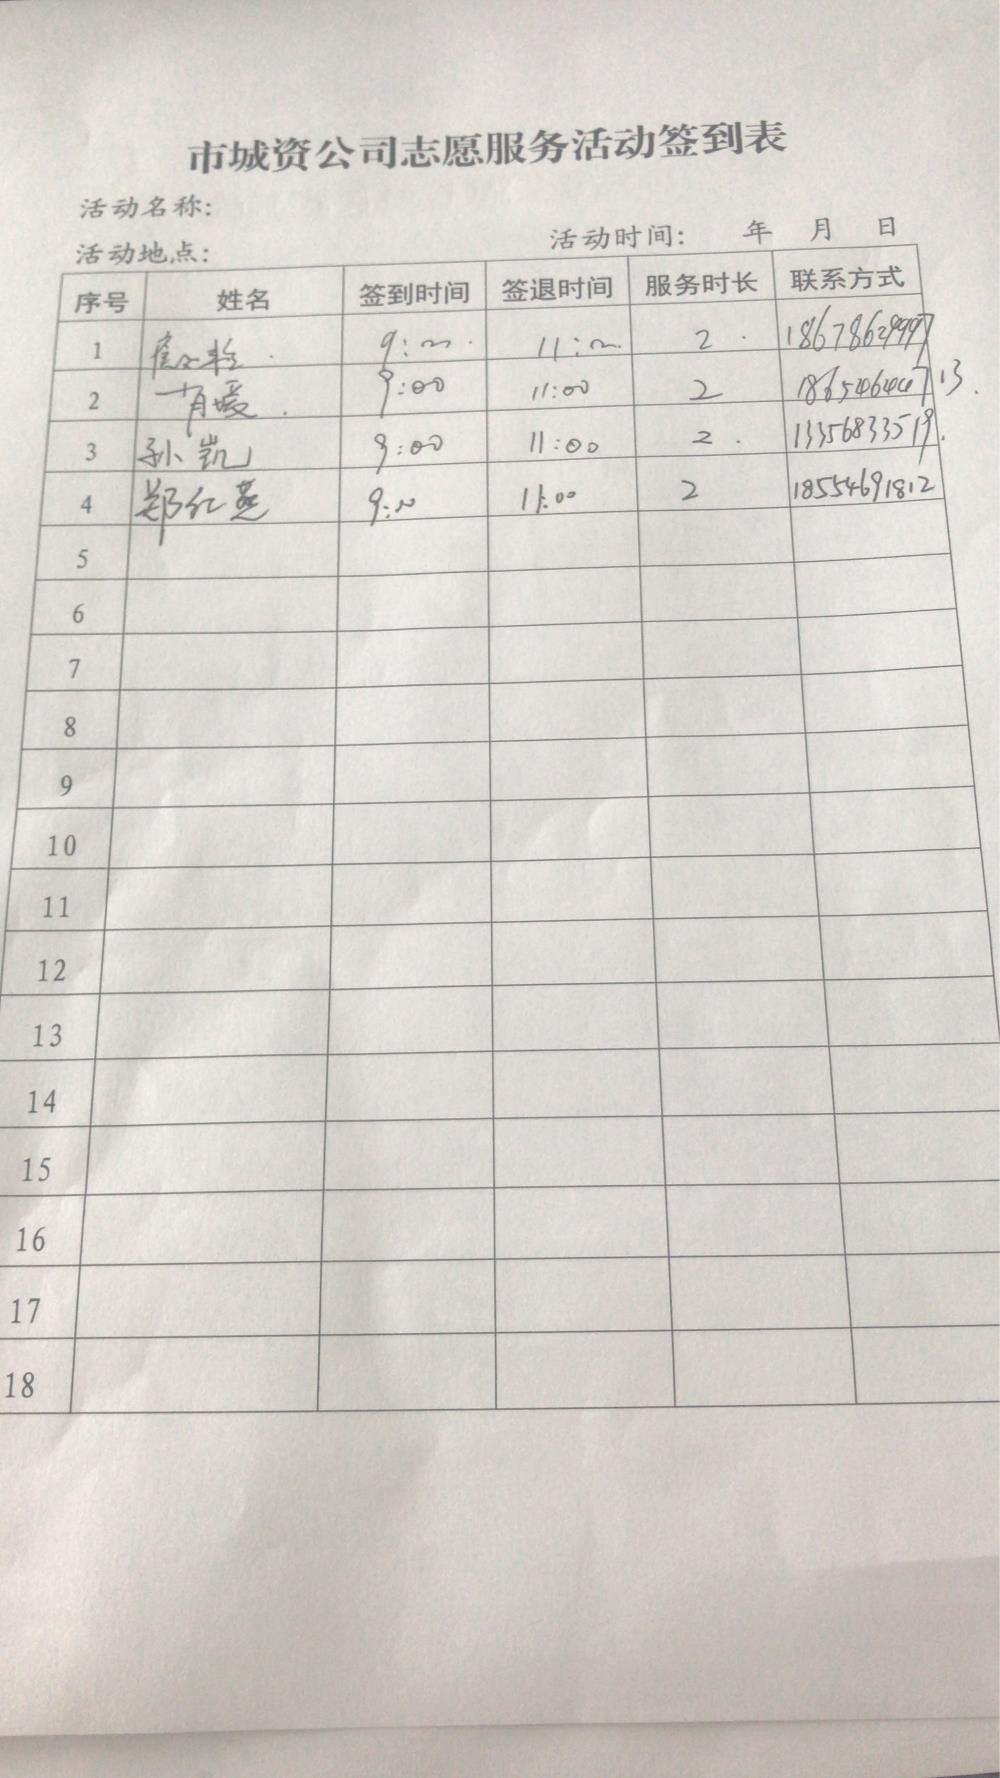 市城资公司志愿服务活动签到表
活动名称:
活动地点: 活动时间: 年 月 日
序号 姓名 签到时间 签退时间 服务时长 联系方式
1 9:00 11:00 2 18678629997
2 肖媛 9:00 11:00 2
3 孙凯 9:00 11:00 2 13356833519
4 郑红燕 9:00 11:00 2 18554691812
5
6
7
8
9
10
11
12
13
14
15
16
17
18